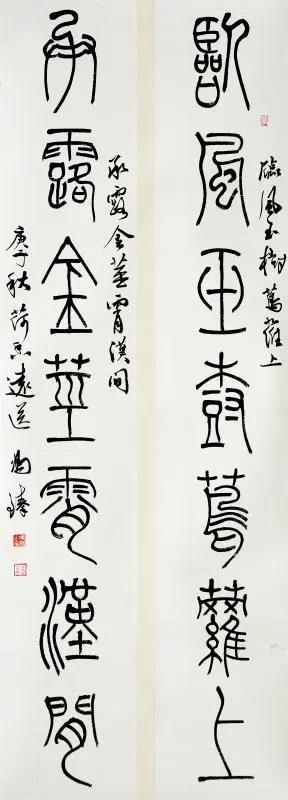 臨風玉樹蔦蘿上
臨風玉樹蔦蘿上
承露金莖霄漢間
承露金莖霄漢間
庚子秋荷香遠送